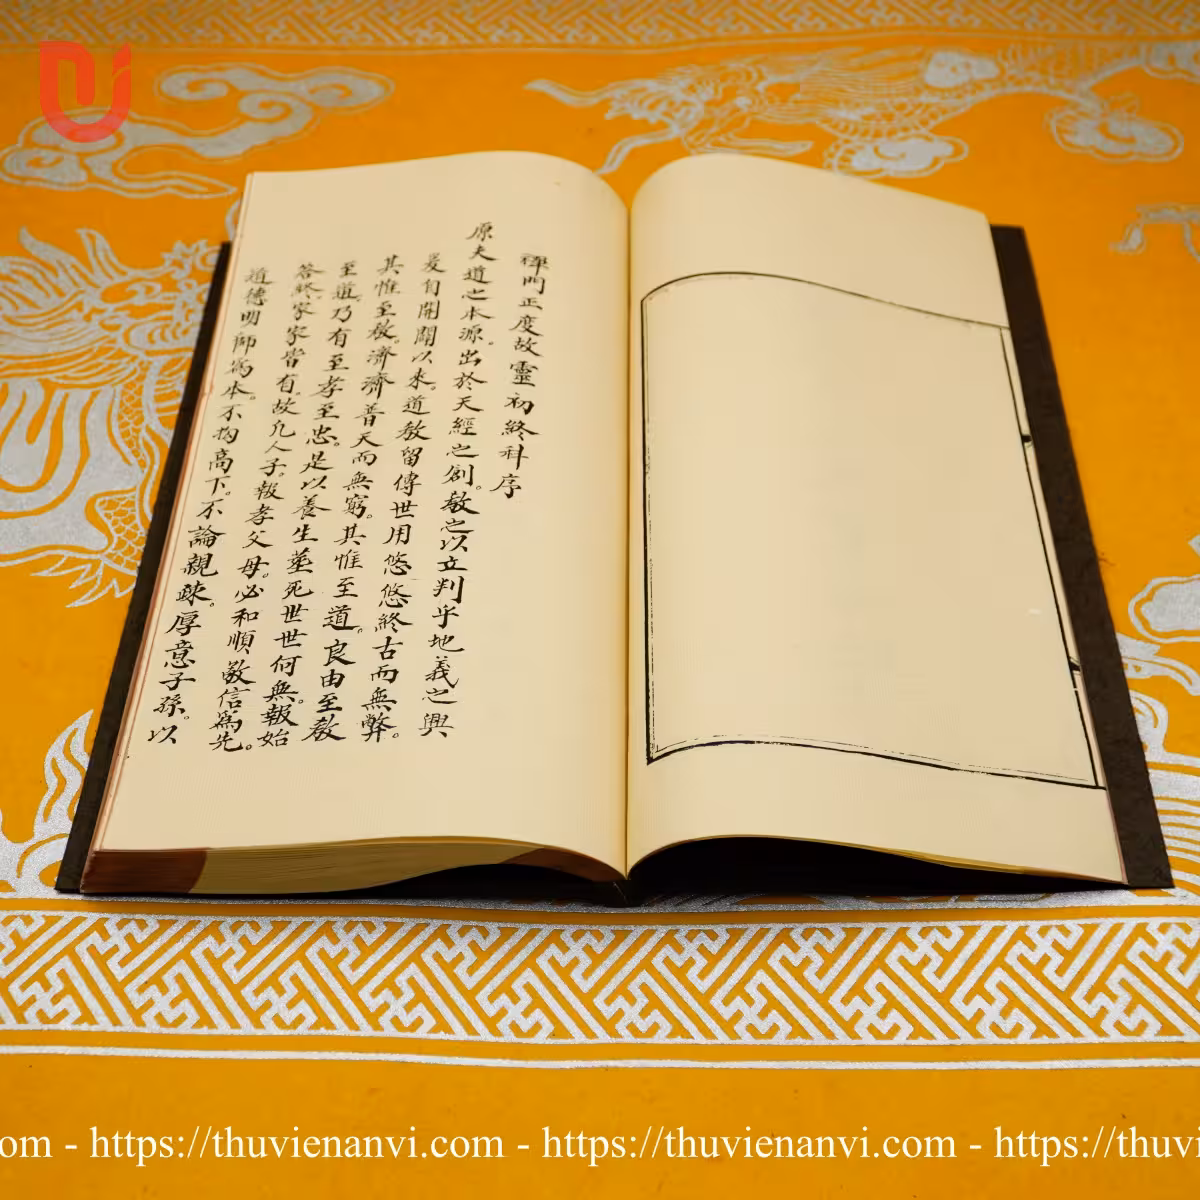 禪門正度故靈初終科序
原夫道之本源。出於天經之創。教之以立判乎地義之興
爰自開闢以來。道教留傳世用悠悠終古而無弊。
其惟至教。濟濟普天而無窮。其惟至道。良由至教
至道。乃有至孝至忠。是以養生葬死世世何無。報始
答終。家家皆有。故凡人子。報孝父母。必和順敬信爲先。
道德明師爲本。不拘高下。不論親疎。厚意子孫。以
om - https://thuvienanvi.com - https://thuvienanvi.com - https://thuvi